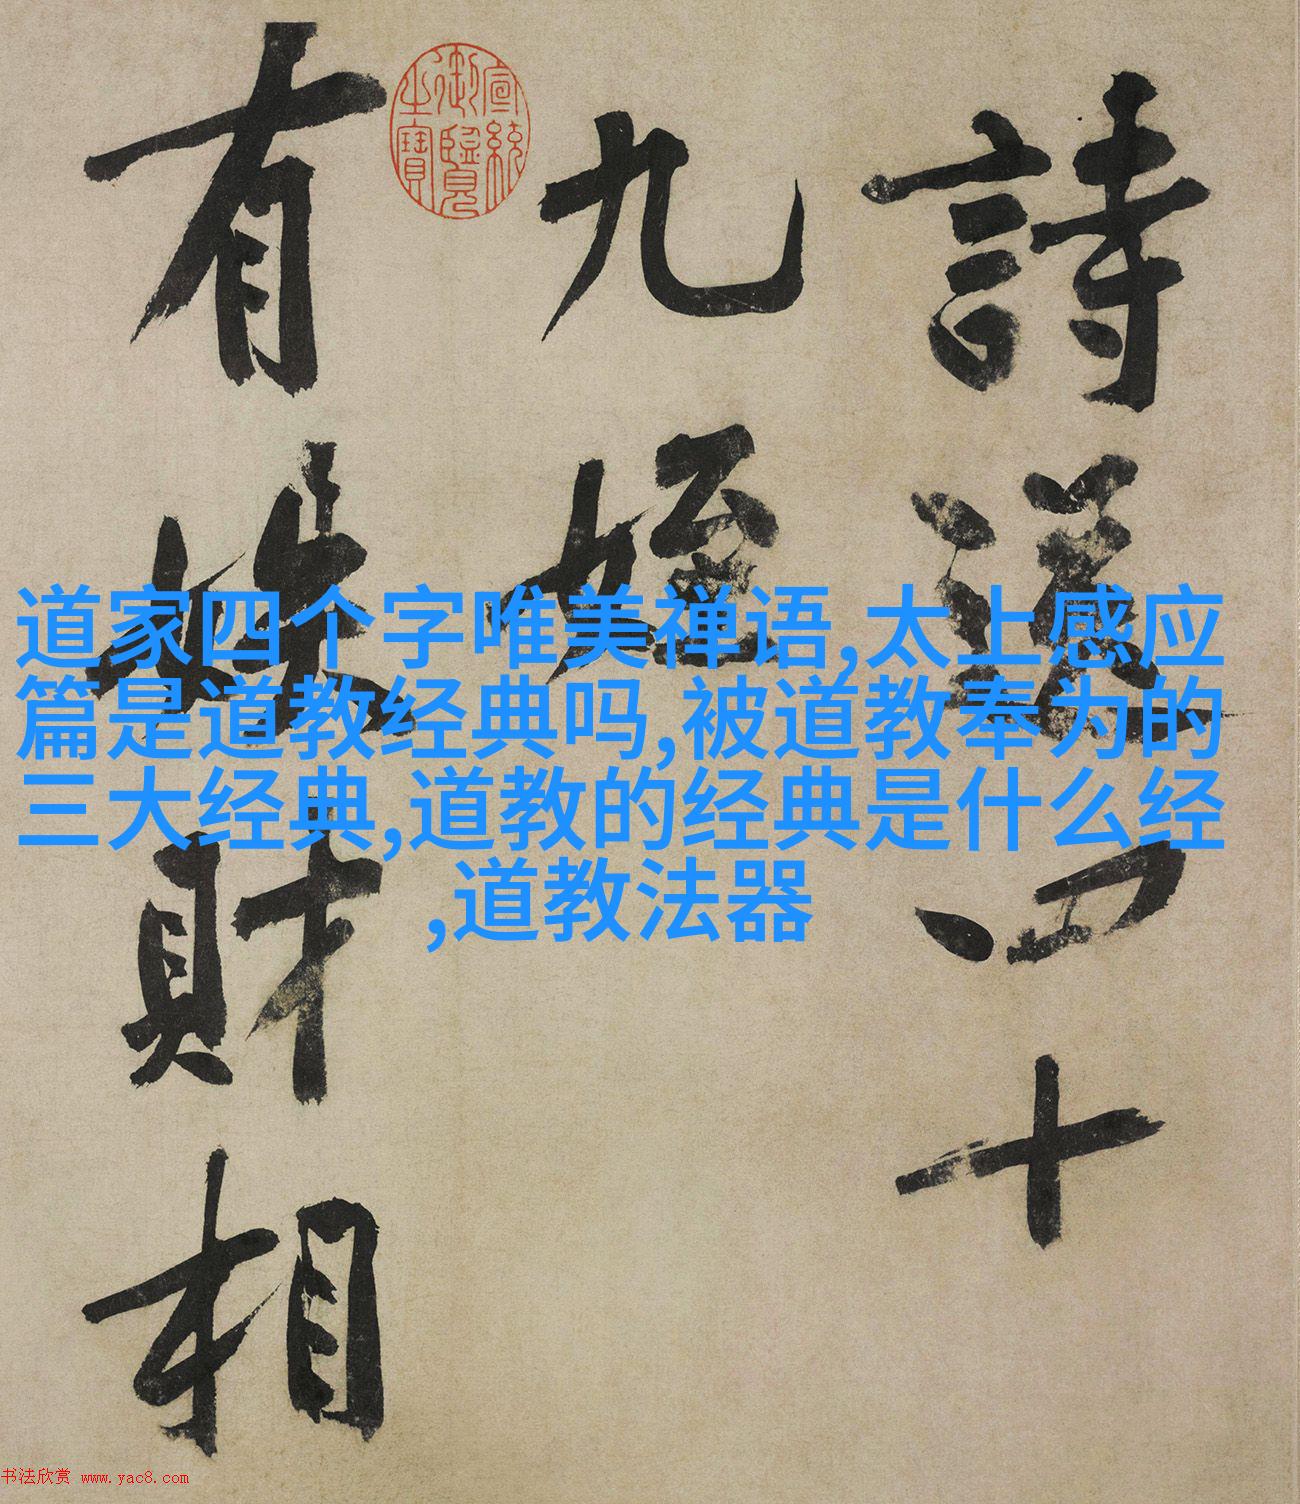 詩送四十
九姪
有妷財相
宣統
御覽
之寶
道家四个字唯美禅语,太上感应
篇是道教经典吗,被道教奉为的
三大经典,道教的经典是什么经
,道教法器
书法欣赏 www.yac8.com